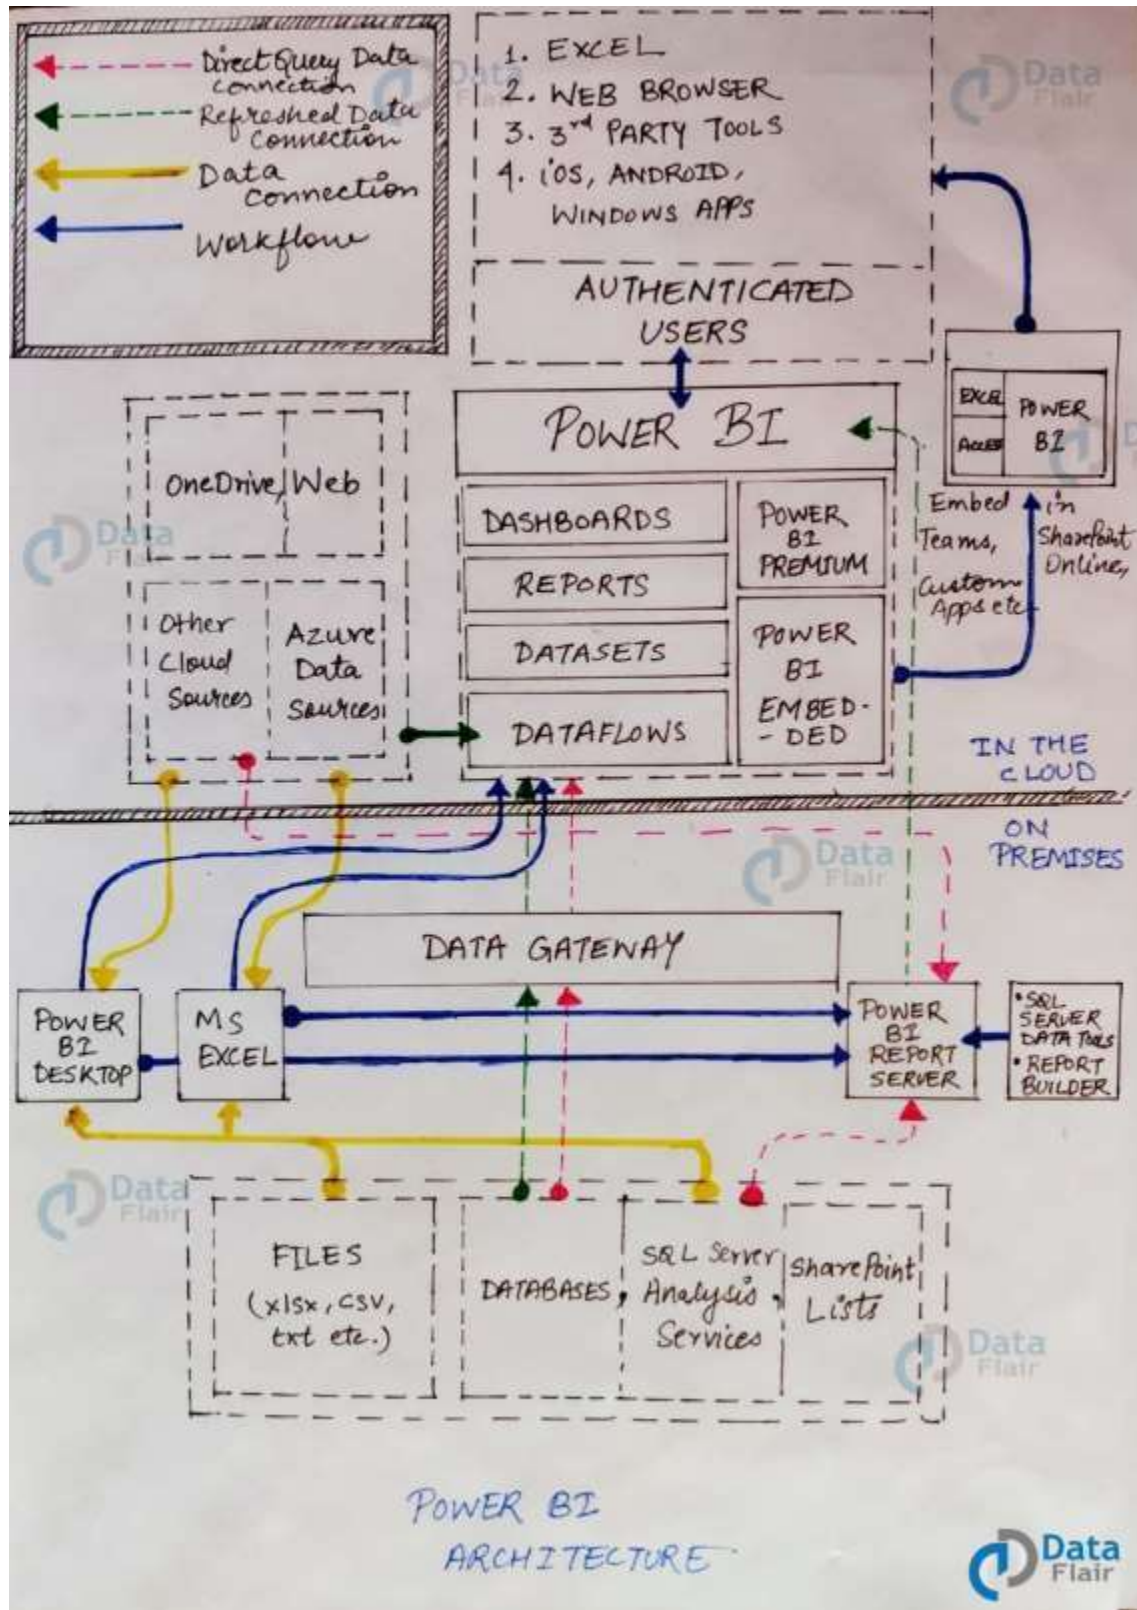 Direct Query Data
connection
Refreshed Data
Connection
Data
connection
Workflow
1. EXCEL
2. WEB BROWSER
3. 3rd PARTY TOOLS
4. iOS, ANDROID,
WINDOWS APPS
AUTHENTICATED
USERS
Data
Flair
Data
Flair
OneDrive, Web
Other
Cloud
Sources
Azure
Data
Sources
Data
POWER BI
DASHBOARDS
REPORTS
DATASETS
DATAFLOWS
POWER
BI
PREMIUM
POWER
BI
EMBED-
-DED
EXCEL
ACCESS
POWER
BI
Embed in
Teams, SharePoint
Online,
Custom
Apps etc
IN THE
CLOUD
ON
PREMISES
Data
Flair
DATA GATEWAY
POWER
BI
DESKTOP
MS
EXCEL
POWER
BI
REPORT
SERVER
• SQL
SERVER
DATA TOOLS
• REPORT
BUILDER
Data
Flair
FILES
(xlsx, csv,
txt etc.)
DATABASES,
SQL Server
Analysis,
Services
SharePoint
Lists
Data
Flair
POWER BI
ARCHITECTURE
Data
Flair